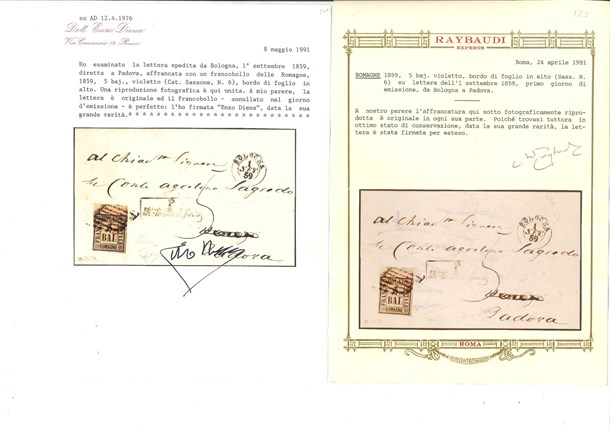 ex AD 12.4.1976
Dott. Enzo Diena
Roma
8 maggio 1991
Ho esaminato la lettera spedita da Bologna, 1° settembre 1859,
diretta a Padova, affrancata con un francobollo delle Romagne,
1859, 5 baj., violetto (Cat. Sassone, N. 6), bordo di foglio in
alto. Una riproduzione fotografica è qui unita. A mio parere, la
lettera è originale ed il francobollo - annullato nel giorno
d'emissione - è perfetto: l'ho firmata "Enzo Diena", data la sua
grande rarità.
BOLOGNA
1
59
al Chiar.mo Signor
Conte Agostino Sagredo
5
BAI
Padova
RAYBAUDI
EXPERTS
Roma, 24 aprile 1991
ROMAGNE 1859, 5 baj. violetto, bordo di foglio in alto (Sass. N.
6) su lettera dell'1 settembre 1859, primo giorno di
emissione, da Bologna a Padova.
A nostro parere l'affrancatura qui sotto fotograficamente ripro-
dotta è originale in ogni sua parte. Poichè trovasi tuttora in
ottimo stato di conservazione, data la sua grande rarità, la let-
tera è stata firmata per esteso.
BOLOGNA
1
59
al Chiar.mo Signor
Conte Agostino Sagredo
5
BAI
Padova
ROMA